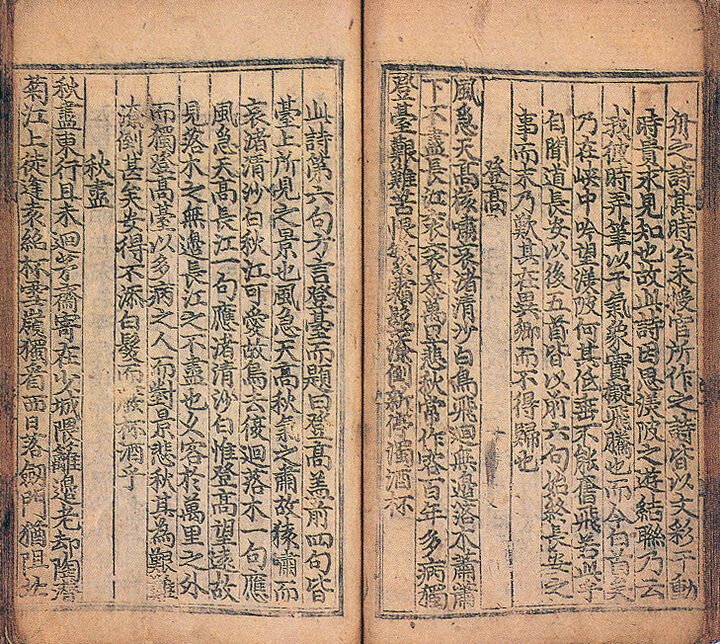 舟之詩其時公未授官所作之詩皆以文彩干動
時貴求見知也故此詩因思渼陂之遊結聯乃云
我彼時弄筆以干氣象實擬飛騰也而今白首矣
乃在峽中吟望渼陂何其低垂不能奮飛若此乎
自聞道長安以後五首皆以前六句始終長安之
事而末乃歎其在異鄉而不得歸也
登高
風急天高猿嘯哀渚清沙白鳥飛迴無邊落木蕭蕭
下不盡長江衮衮來萬里悲秋常作客百年多病獨
登臺艱難苦恨繁霜鬢潦倒新停濁酒杯
此詩第六句方言登臺而題曰登高蓋前四句皆
臺上所見之景也風急天高秋氣之肅故猿嘯而
哀渚清沙白秋江可愛故鳥去復迴落木一句應
風急天高長江一句應渚清沙白惟登高望遠故
見落木之無邊長江之不盡也久客於萬里之外
而獨登高臺以多病之人而對景悲秋其爲艱難
潦倒甚矣安得不添白髮而廢杯酒乎
秋盡
秋盡東行且未迴茅齋寄在少城隈籬邊老却陶潛
菊江上徒逢袁紹杯雪嶺獨看西日落劍門猶阻北